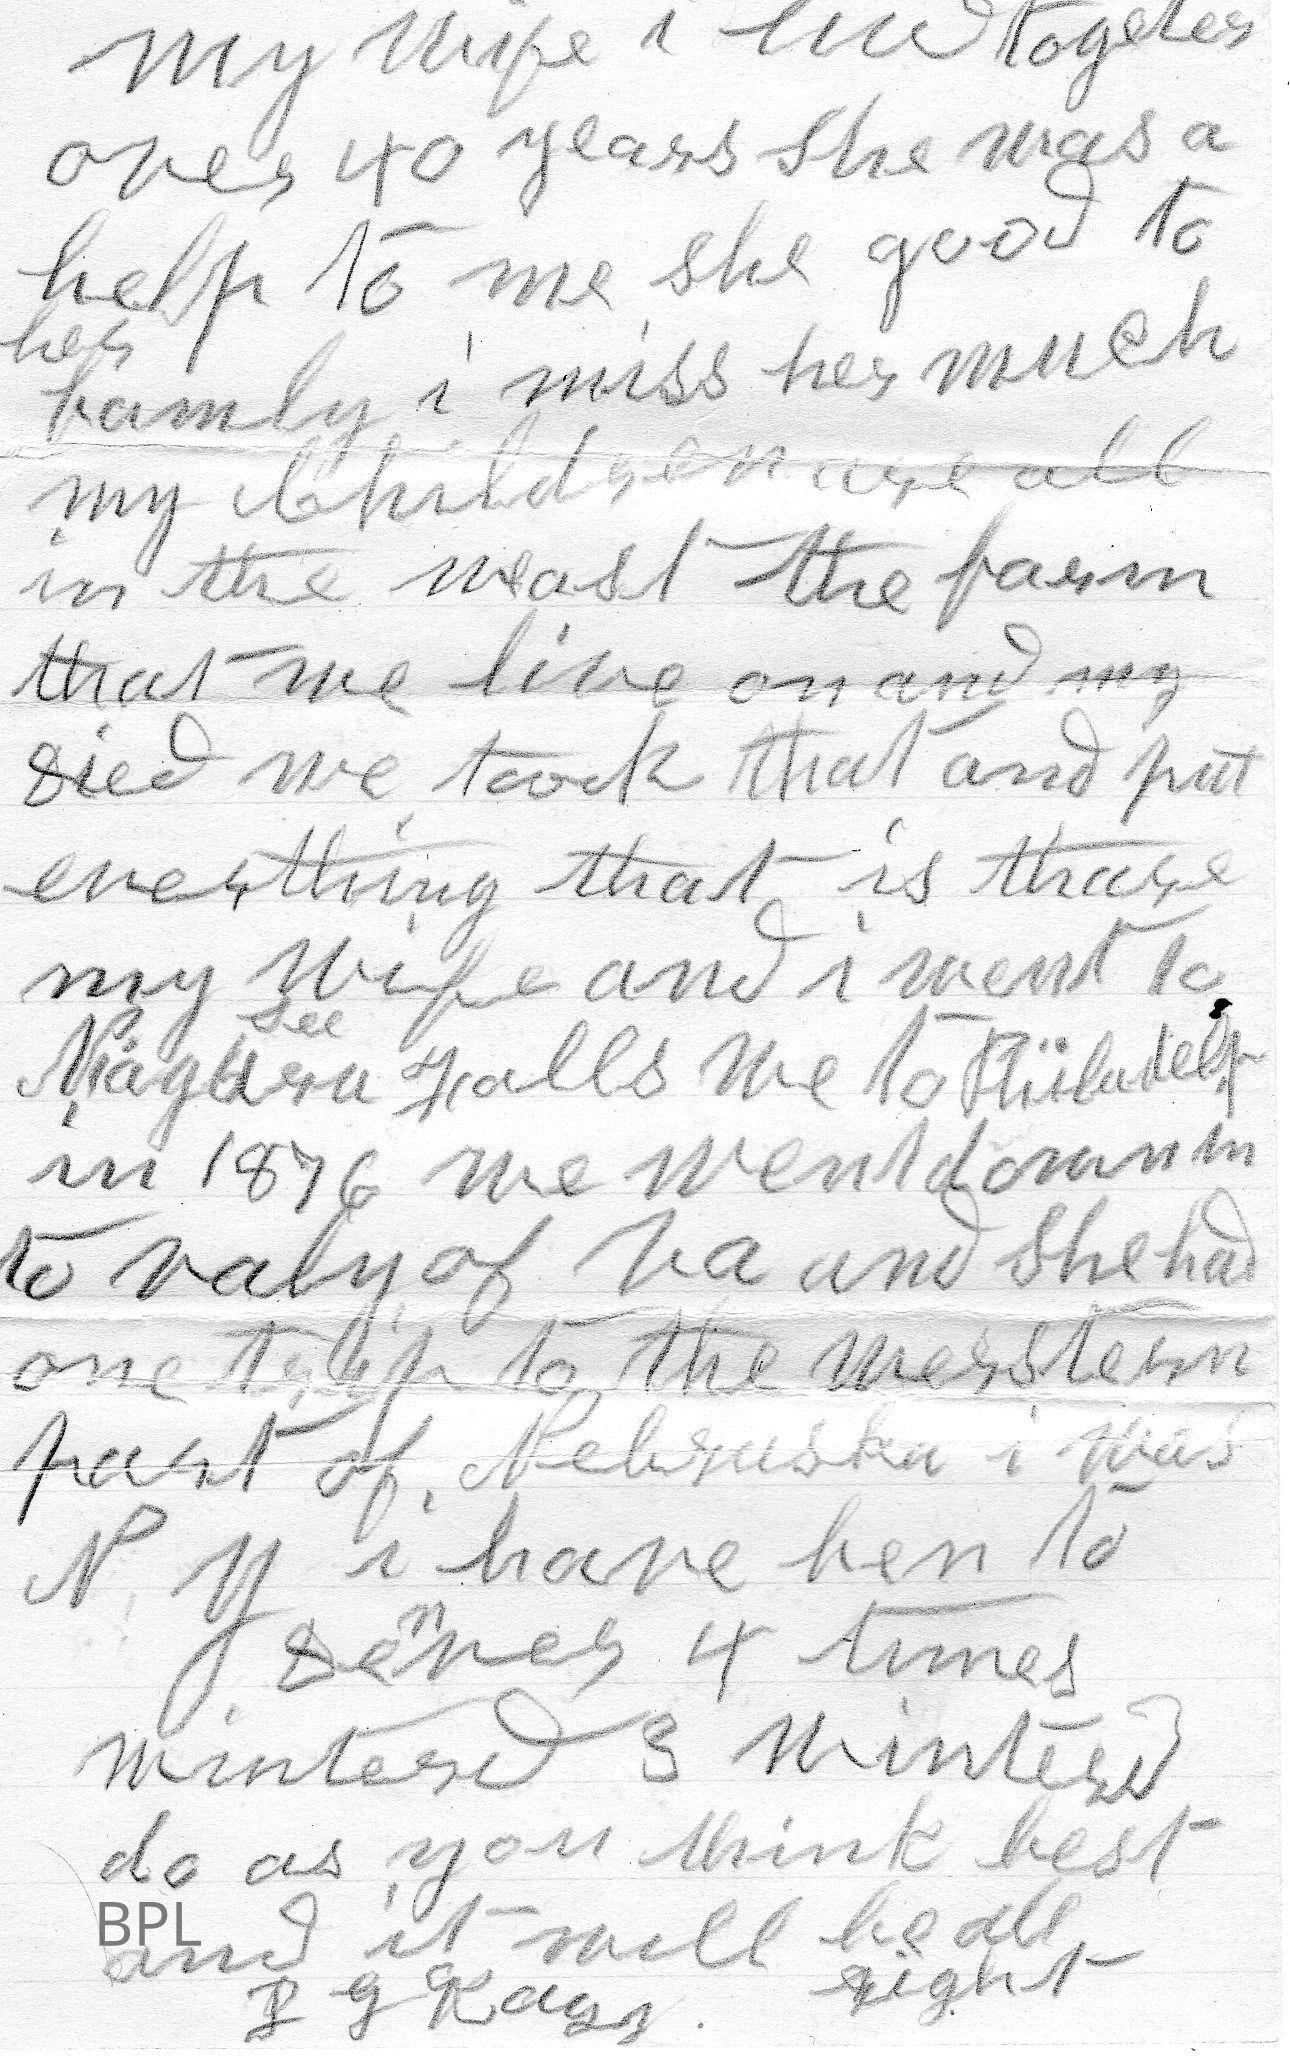 my wife i livd togeter
over 40 years she was a
help to me she good to
her
famly i miss her much
my Children are all
in the weast the farm
that we live on and my
died we took that and put
everthing that is thare
my wife and i went to
see
Niagara Falls we to Philadelp
in 1876 we went down in
to valy of va and she had
one trip to the western
part of Nebraska i was
N. Y i have ben to
Denver 4 times
wintered 3 wintered
do as you think best
and it will be all
right
BPL
I G Kays.